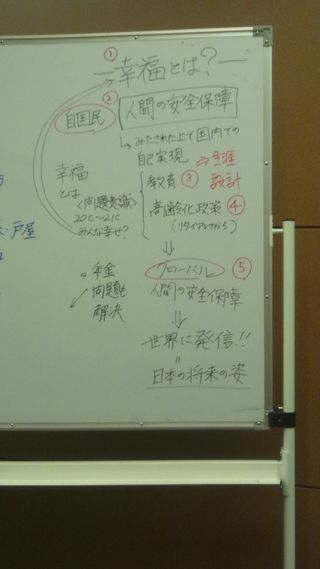 ①
ー幸福とは？ー
②
自国民
人間の安全保障
↳みたされた上で国内での
自己実現 ⇒生涯
教育③ 設計
高齢化政策④
(リタイアしてから)
幸福
とは
〈問題意識〉
20C〜21C
みんな幸せ?
⇓
グローバル ⑤
人間の安全保障
。年金
問題も
解決
⇓
世界に発信!!
=
日本の将来の姿
戸屋